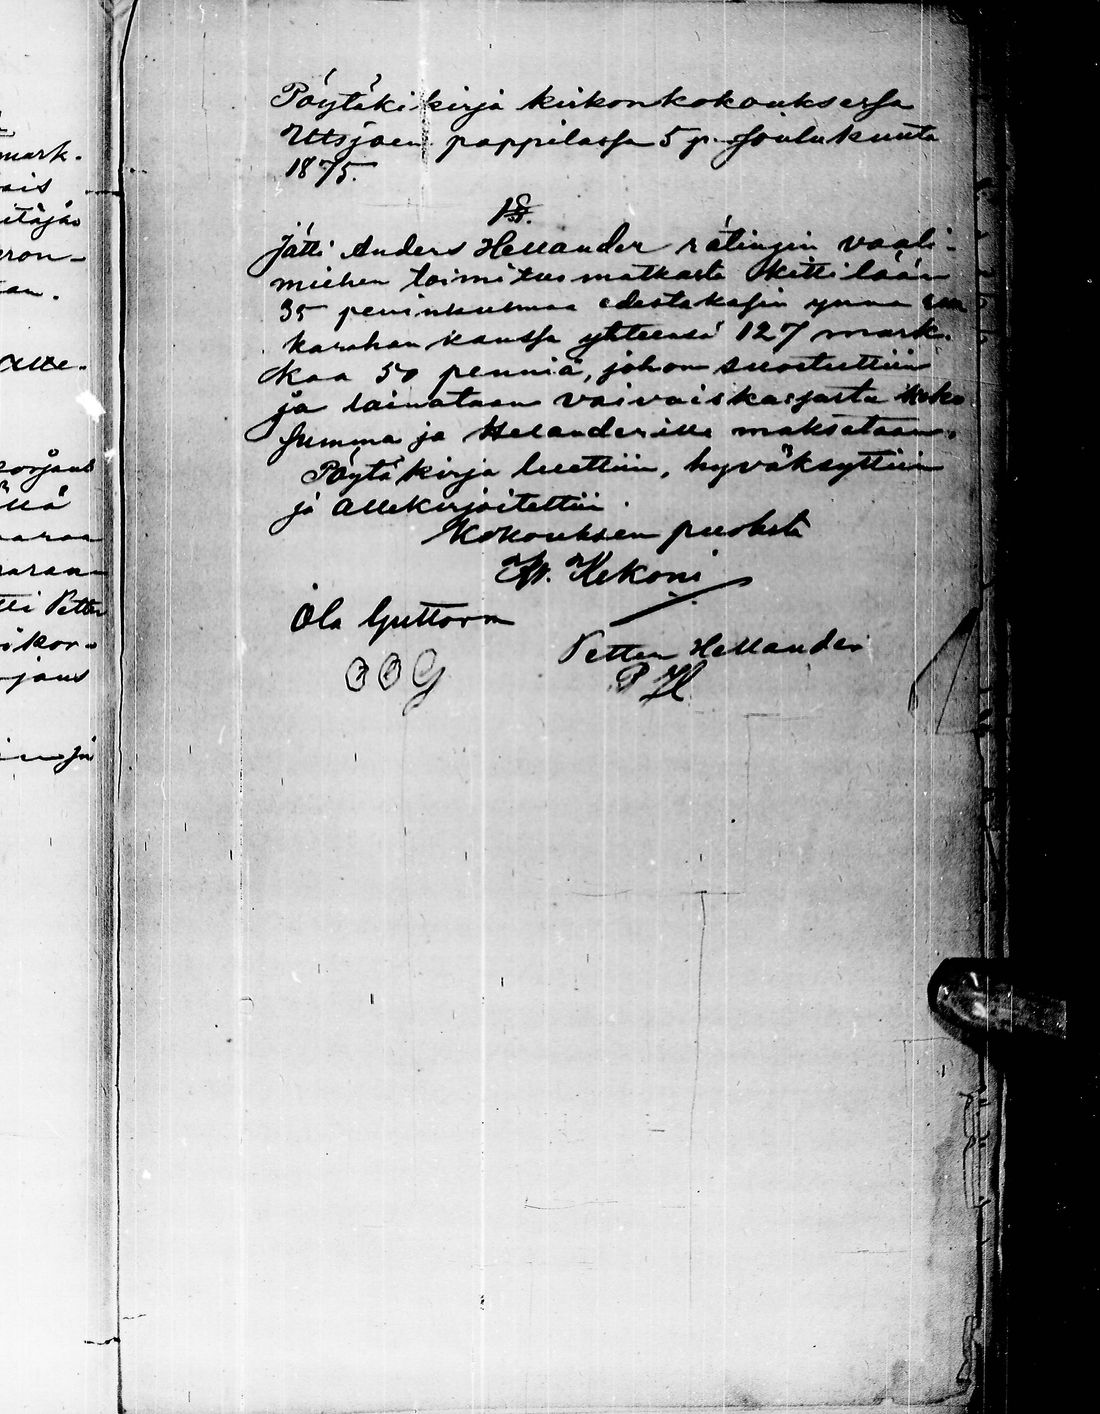 mark.
ais
itäjä
eron-
an.
Alle-
korjaus
ällä
varaa
varan-
tti Petter
ikor-
jaus
ja
Pöytäkikirja kirkonkokouksessa
Utsjoen pappilassa 5 p. Joulukuuta
1875.
1 §.
Jätti Anders Hellander rätingin vaali-
miehen toimitus matkasta Kittilään
35 peninkulmaa edestakasin ynnä
karahan kanssa yhteensä 127 mark-
kaa 50 penniä, johon suostuttiin
ja lainataan vaivaiskassasta koko
summa ja Helanderille maksetaan.
Pöytäkirja luettiin, hyväksyttiin
ja Allekirjoitettiin
Kokouksen puolesta
W. Kekoni
Ola Guttorm
O O G
Petter Hellander
P H